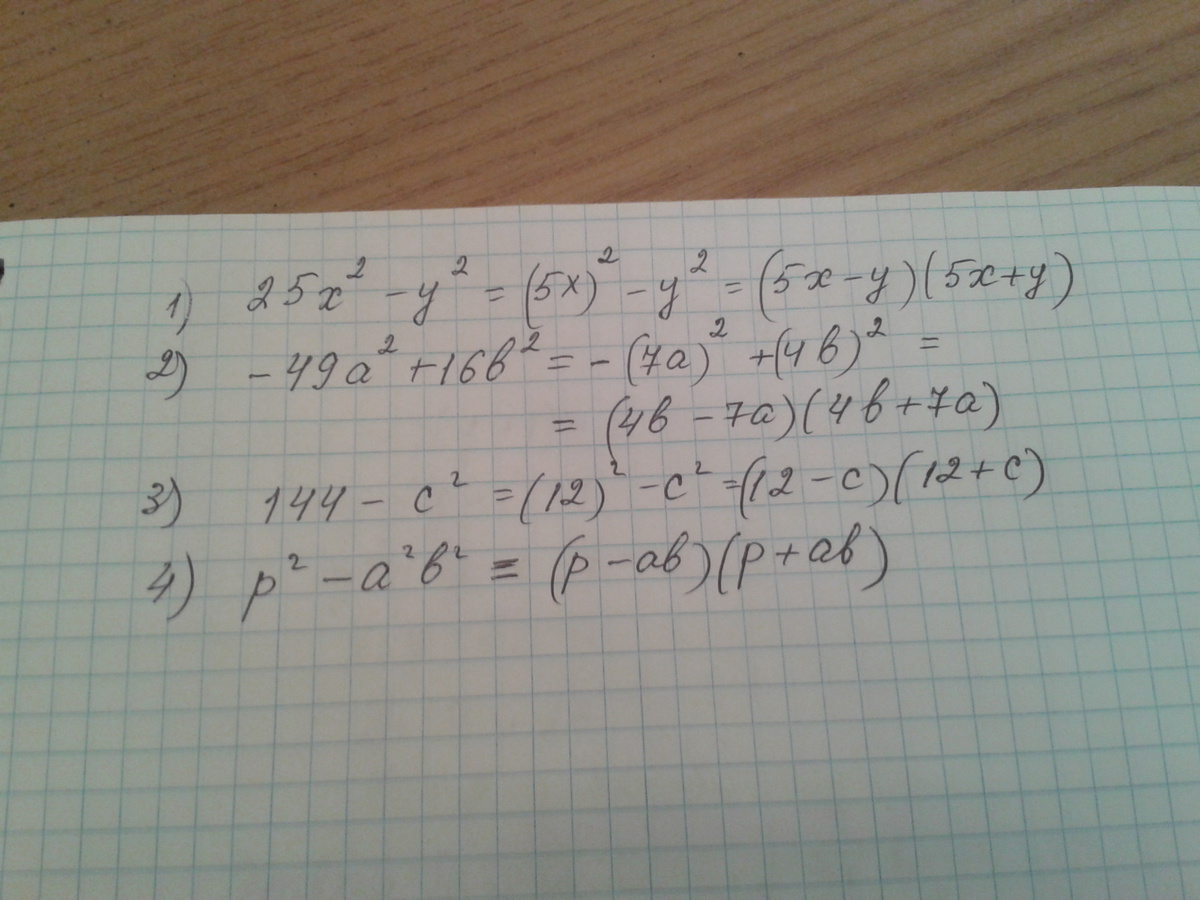 1) 25x² - y² = (5x)² - y² = (5x - y)(5x + y)
2) - 49a² + 16b² = - (7a)² + (4b)² =
= (4b - 7a)(4b + 7a)
3) 144 - c² = (12)² - c² = (12 - c)(12 + c)
4) p² - a²b² = (p - ab)(p + ab)